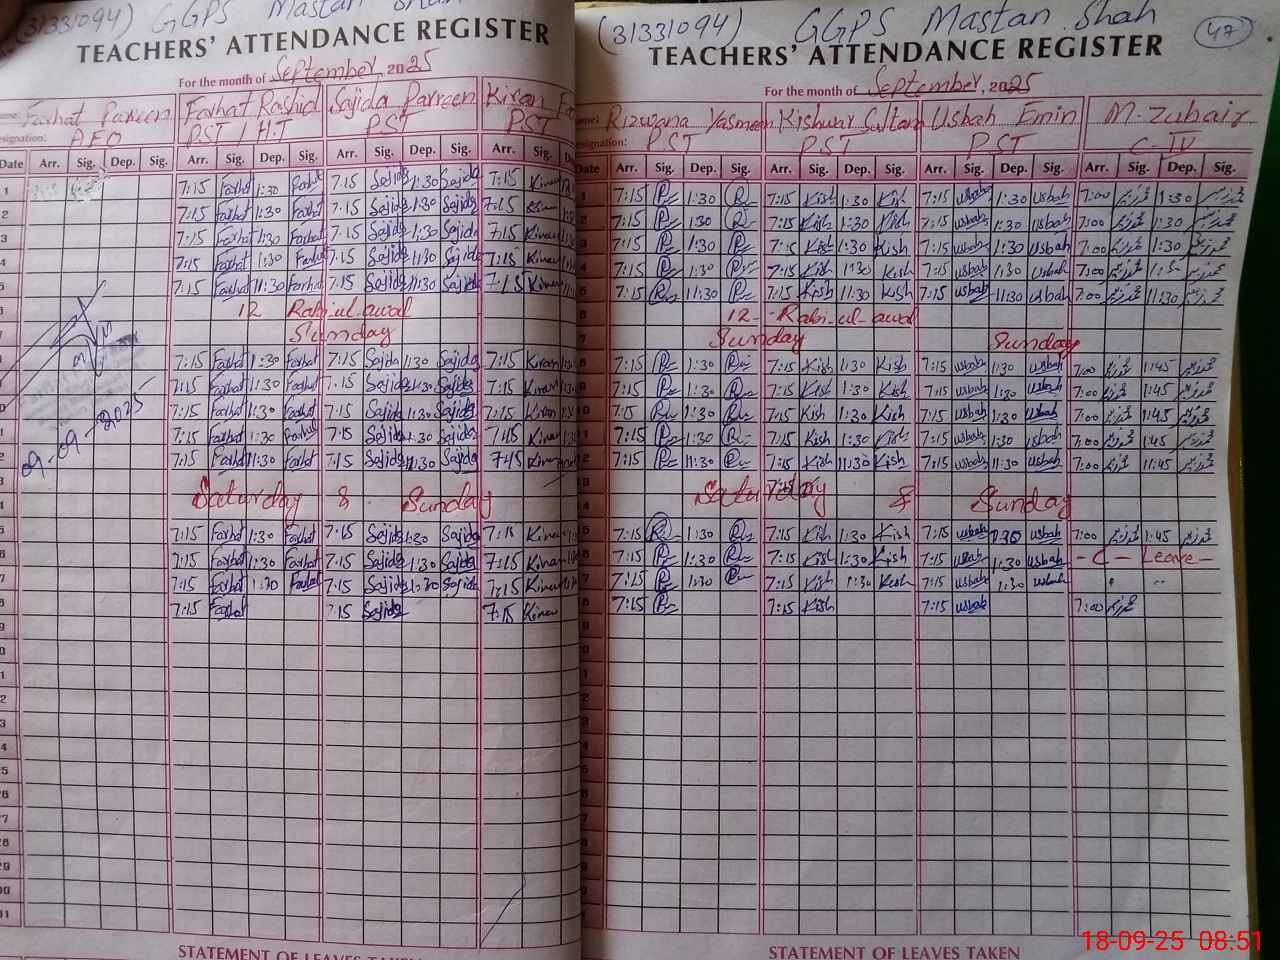 (31331094) GGPS Mastan Shah
TEACHERS' ATTENDANCE REGISTER
For the month of September, 2025
Farhat Parveen Farhat Rashid Sajida Parveen Kiran
esignation: AEO PST / H.T PST PST
Date Arr. Sig. Dep. Sig. Arr. Sig. Dep. Sig. Arr. Sig. Dep. Sig. Arr. Sig.
1 7:15 Farhat 1:30 Farhat 7:15 Sajida 1:30 Sajida 7:15 Kiran
2 7:15 Farhat 1:30 Farhat 7:15 Sajida 1:30 Sajida 7:15 Kiran
3 7:15 Farhat 1:30 Farhat 7:15 Sajida 1:30 Sajida 7:15 Kiran
4 7:15 Farhat 1:30 Farhat 7:15 Sajida 1:30 Sajida 7:15 Kiran
5 7:15 Farhat 11:30 Farhat 7:15 Sajida 11:30 Sajida 7:15 Kiran
12 Rabi-ul-awal
Sunday
7:15 Farhat 1:30 Farhat 7:15 Sajida 1:30 Sajida 7:15 Kiran
7:15 Farhat 1:30 Farhat 7:15 Sajida 1:30 Sajida 7:15 Kiran
7:15 Farhat 1:30 Farhat 7:15 Sajida 1:30 Sajida 7:15 Kiran
7:15 Farhat 1:30 Farhat 7:15 Sajida 1:30 Sajida 7:15 Kiran
7:15 Farhat 11:30 Farhat 7:15 Sajida 11:30 Sajida 7:15 Kiran
09-09-2025
Saturday & Sunday
7:15 Farhat 1:30 Farhat 7:15 Sajida 1:30 Sajida 7:15 Kiran
7:15 Farhat 1:30 Farhat 7:15 Sajida 1:30 Sajida 7:15 Kiran
7:15 Farhat 1:30 Farhat 7:15 Sajida 1:30 Sajida 7:15 Kiran
7:15 Farhat 7:15 Sajida 7:15 Kiran
STATEMENT OF LEAVES TAKEN
(31331094) GGPS Mastan Shah 47
TEACHERS' ATTENDANCE REGISTER
For the month of September, 2025
Rizwana Yasmeen Kishwar Sultana Usbah Emin M. Zubair
esignation: PST PST PST C-IV
Date Arr. Sig. Dep. Sig. Arr. Sig. Dep. Sig. Arr. Sig. Dep. Sig. Arr. Sig. Dep. Sig.
7:15 1:30 7:15 Kish 1:30 Kish 7:15 usbah 1:30 usbah 7:00 1:30
7:15 1:30 7:15 Kish 1:30 Kish 7:15 usbah 1:30 usbah 7:00 1:30
7:15 1:30 7:15 Kish 1:30 Kish 7:15 usbah 1:30 usbah 7:00 1:30
7:15 1:30 7:15 Kish 1:30 Kish 7:15 usbah 1:30 usbah 7:00
7:15 11:30 7:15 Kish 11:30 Kish 7:15 usbah 11:30 usbah 7:00 11:30
12 - Rabi-ul-awal
Sunday Sunday
7:15 1:30 7:15 Kish 1:30 Kish 7:15 usbah 1:30 usbah 7:00 1:45
7:15 1:30 7:15 Kish 1:30 Kish 7:15 usbah 1:30 usbah 7:00 1:45
7:15 1:30 7:15 Kish 1:30 Kish 7:15 usbah 1:30 usbah 7:00 1:45
7:15 1:30 7:15 Kish 1:30 Kish 7:15 usbah 1:30 usbah 7:00 1:45
7:15 11:30 7:15 Kish 11:30 Kish 7:15 usbah 11:30 usbah 7:00 11:45
Saturday & Sunday
7:15 1:30 7:15 Kish 1:30 Kish 7:15 usbah 1:30 usbah 7:00 1:45
7:15 1:30 7:15 Kish 1:30 Kish 7:15 usbah 1:30 usbah - C - Leave -
7:15 1:30 7:15 Kish 1:30 Kish 7:15 usbah 1:30 usbah
7:15 7:15 Kish 7:15 usbah 7:00
STATEMENT OF LEAVES TAKEN
18-09-25 08:51